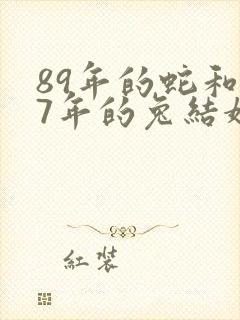 89年的蛇和
7年的兔結
紅裝